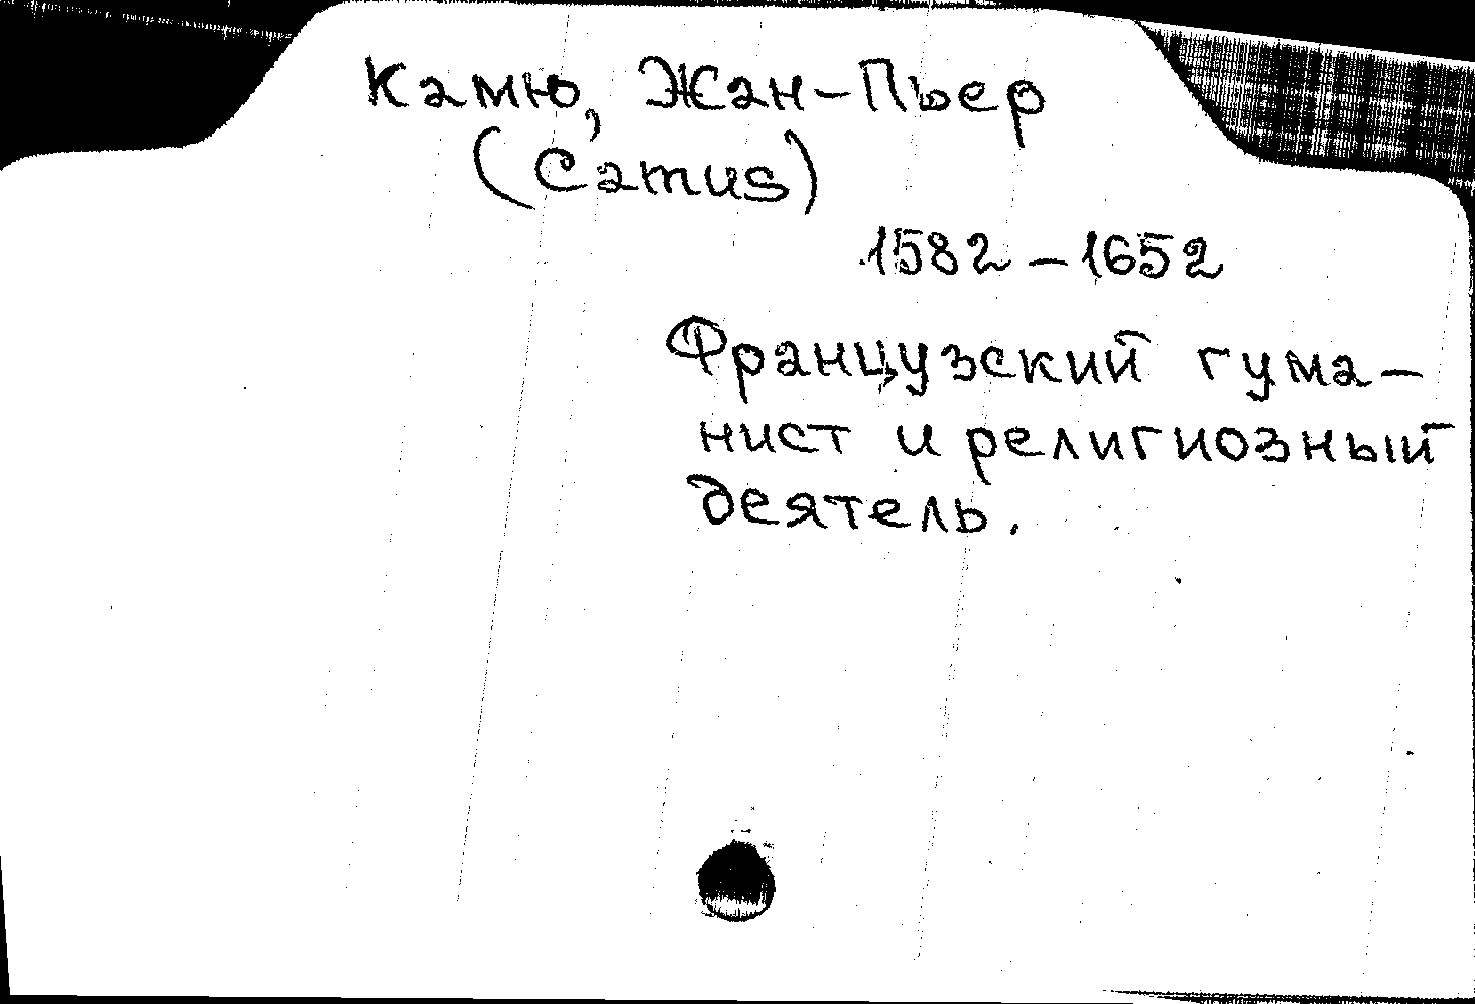 Камю, Жан-Пьер
(Camus)
1582 – 1652
Французский гума-
нист и религиозный
деятель.